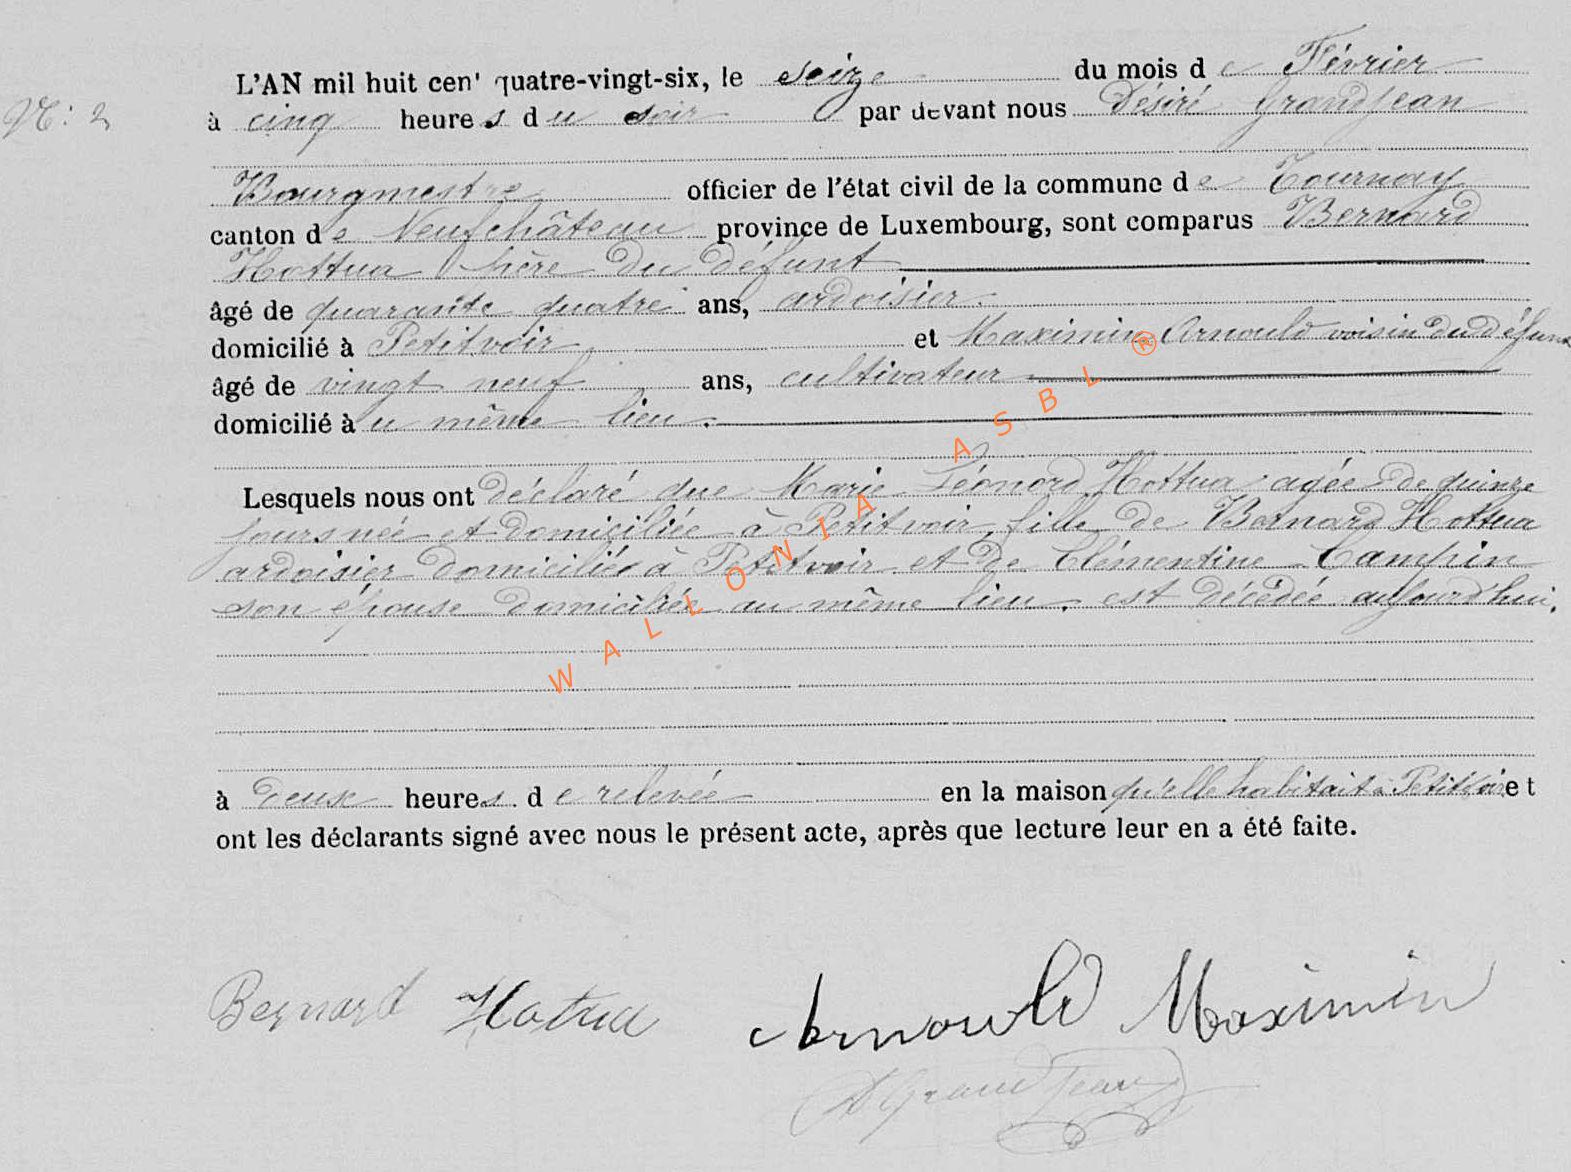 L'AN mil huit cen' quatre-vingt-six, le seize du mois de Février
N: 2
à cinq heures du soir par devant nous Désiré Grandjean
Bourgmestre officier de l'état civil de la commune de Tournay
canton de Neufchâteau province de Luxembourg, sont comparus Bernard
Hottua père du défunt
âgé de quarante quatre ans, ardoisier.
domicilié à Petitvoir et Maximin Arnould voisin du défunt
âgé de vingt neuf ans, cultivateur
domicilié au même lieu.
Lesquels nous ont déclaré que Marie Léonord Hottua agée de quinze
jours née et domiciliée à Petitvoir, fille de Bernard Hottua
ardoisier domiciliée à Petitvoir et de Clémentine Campin
son épouse domiciliée au même lieu. est décédée aujourd'hui.
à deux heures de relevée en la maison qu'elle habitait à Petitvoir et
ont les déclarants signé avec nous le présent acte, après que lecture leur en a été faite.
Bernard Hotua Arnould Maximin
D Grand Jean
WALLONIA ASBL ®